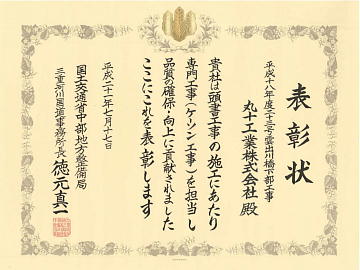 表彰状
平成十八年度二十三号雲出川橋下部工事
丸十工業株式会社 殿
貴社は頭書工事の施工にあたり
専門工事(ケーソン工事)を担当し
品質の確保・向上に貢献されました
ここにこれを表彰します
平成二十一年七月十七日
国土交通省中部地方整備局
三重河川国道事務所長 徳元真一